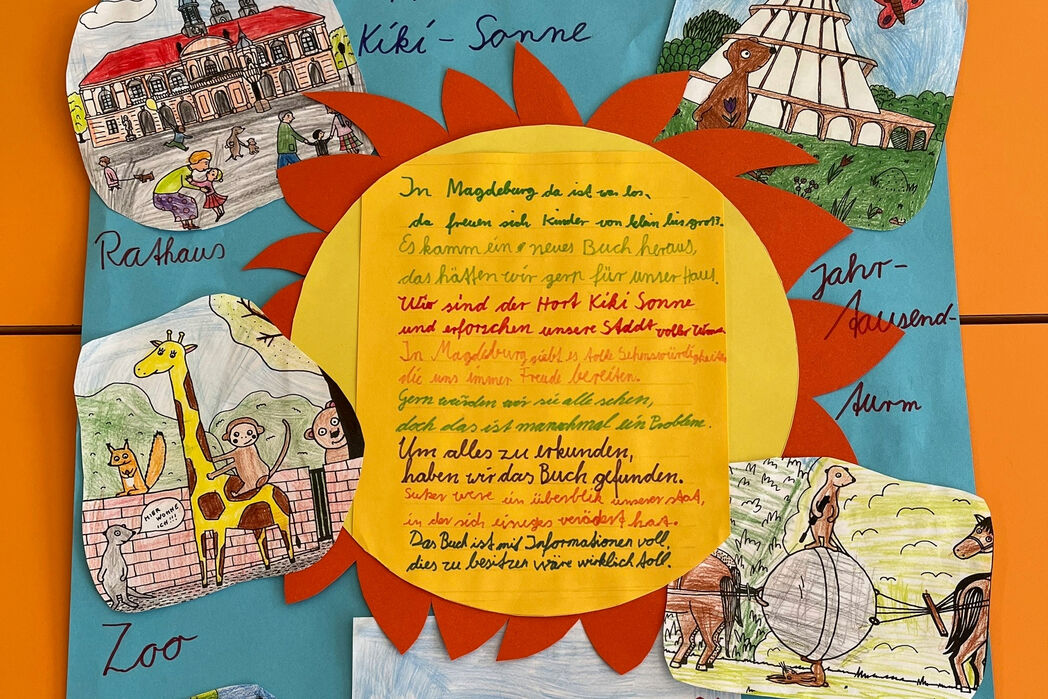 Kiki - Sonne
In Magdeburg da ist was los,
da freuen sich Kinder von klein bis groß.
Es kamm ein neues Buch heraus,
das hätten wir gern für unser Haus.
Wir sind der Hort Kiki Sonne
und erforschen unsere Stadt voller Wonne.
In Magdeburg giebt es tolle Sehenswürdigkeiten
die uns immer Freude bereiten.
Gern würden wir sie alle sehen,
doch das ist manchmal ein Probleme.
Um alles zu erkunden,
haben wir das Buch gefunden.
were ein überblik unserer stat,
in der sich einiges verändert hat.
Das Buch ist mit Informationen voll,
dies zu besitzen wäre wirklich toll.
Rathaus
Jahr-
tausend-
turm
HIER WOHNE
ICH!!!
Zoo